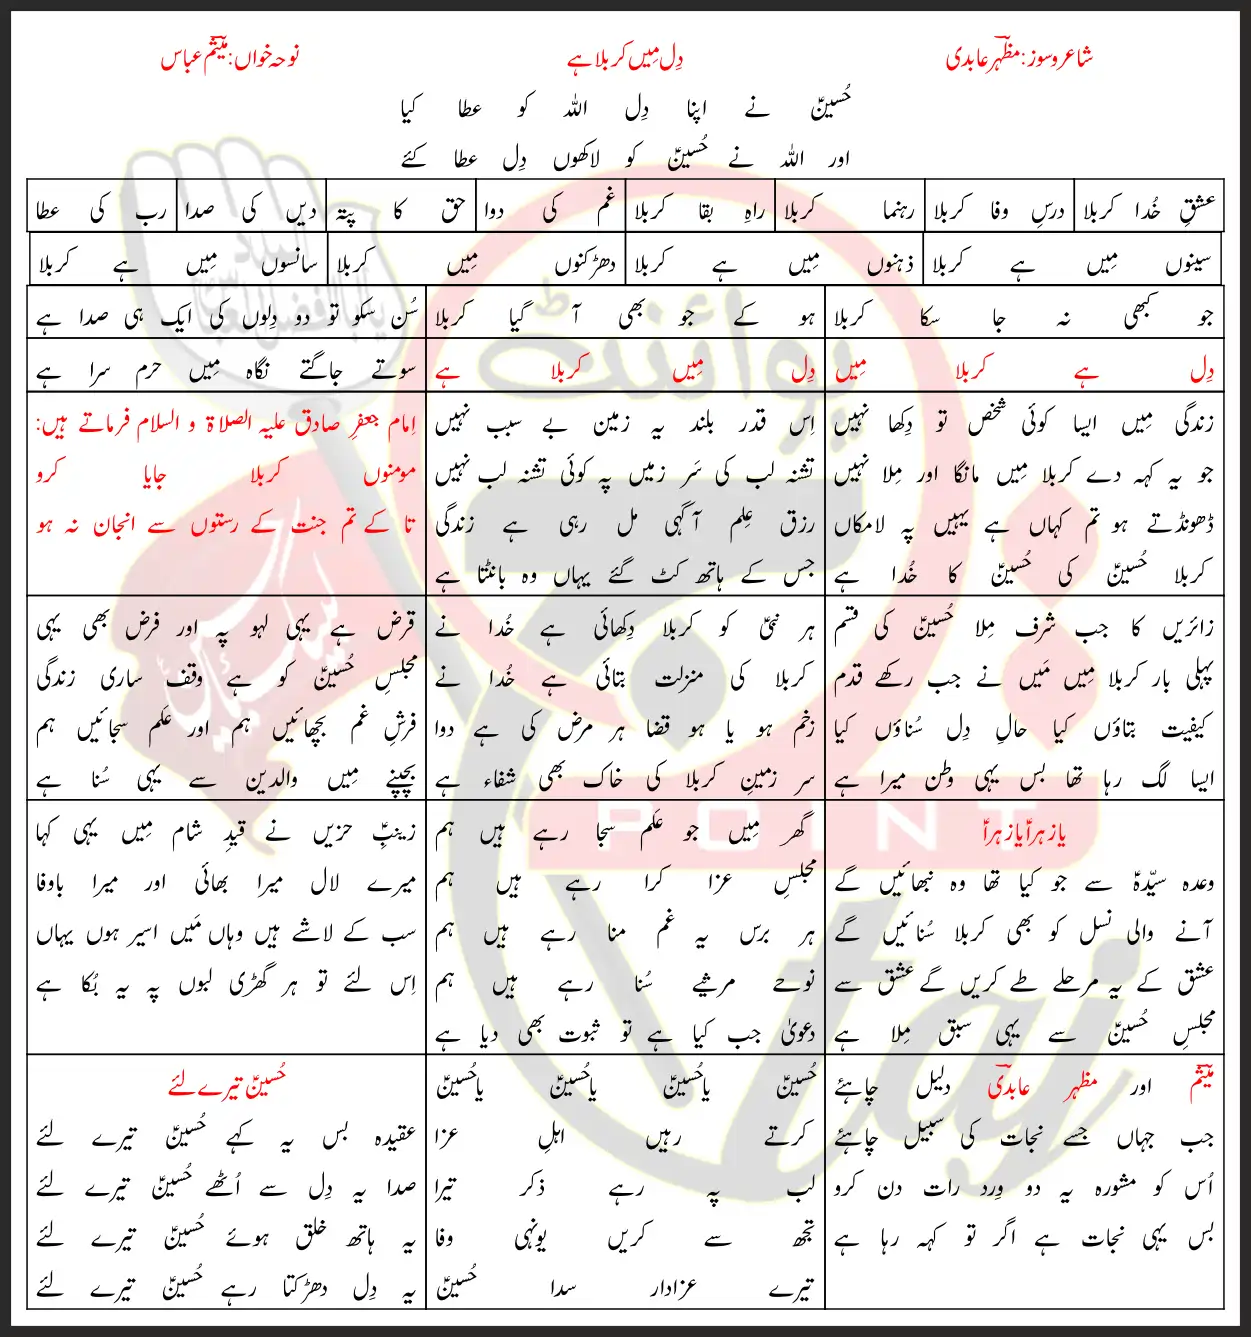 شاعر و سوز: مظہر عابدی
دِل مِیں کربلا ہے
نوحہ خواں: میثم عباس
حُسینؑ نے اپنا دِل اللہ کو عطا کیا
اور اللہ نے حُسینؑ کو لاکھوں دِل عطا کئے
عشقِ خُدا کربلا
درسِ وفا کربلا
رہنما کربلا
راہِ بقا کربلا
غم کی دوا
حق کا پتہ
دیں کی صدا
رب کی عطا
سینوں مِیں ہے کربلا
ذہنوں مِیں ہے کربلا
دھڑکنوں مِیں کربلا
سانسوں مِیں ہے کربلا
جو کبھی نہ جا سکا کربلا
ہو کے جو بھی آ گیا کربلا
سُن سکو تو دو دِلوں کی ایک ہی صدا ہے
دِل ہے کربلا مِیں
دِل مِیں کربلا ہے
سوتے جاگتے نگاہ مِیں حرم سرا ہے
زندگی مِیں ایسا کوئی شخص تو دِکھا نہیں
جو یہ کہہ دے کربلا مِیں مانگا اور مِلا نہیں
ڈھونڈتے ہو تم کہاں ہے یہیں پہ لامکاں
کربلا حُسینؑ کی حُسینؑ کا خُدا ہے
اِس قدر بلند یہ زمین بے سبب نہیں
تشنہ لب کی سَر زمیں پہ کوئی تشنہ لب نہیں
رزق عِلم آگہی مل رہی ہے زندگی
جس کے ہاتھ کٹ گئے یہاں وہ بانٹتا ہے
اِمام جعفرِ صادق علیہ الصلاۃ و السلام فرماتے ہیں:
مومنوں کربلا جایا کرو
تا کے تم جنت کے رستوں سے انجان نہ ہو
زائریں کا جب شرف مِلا حُسینؑ کی قسم
پہلی بار کربلا مِیں مَیں نے جب رکھے قدم
کیفیت بتاؤں کیا حالِ دِل سُناؤں کیا
ایسا لگ رہا تھا بس یہی وطن میرا ہے
ہر نبیؑ کو کربلا دِکھائی ہے خُدا نے
کربلا کی منزلت بتائی ہے خُدا نے
زخم ہو یا ہو قضا ہر مرض کی ہے دوا
سر زمینِ کربلا کی خاک بھی شفاء ہے
قرض ہے یہی لہو پہ اور فرض بھی یہی
مجلسِ حُسینؑ کو ہے وقف ساری زندگی
فرشِ غم بچھائیں ہم اور عَلم سجائیں ہم
بچپنے مِیں والدین سے یہی سُنا ہے
یا زہراؑ یا زہراؑ
وعدہ سیّدہؑ سے جو کیا تھا وہ نبھائیں گے
آنے والی نسل کو بھی کربلا سُنائیں گے
عشق کے یہ مرحلے طے کریں گے عشق سے
مجلسِ حُسینؑ سے یہی سبق مِلا ہے
گھر مِیں جو عَلم سجا رہے ہیں ہم
مجلسِ عزا کرا رہے ہیں ہم
ہر برس یہ غم منا رہے ہیں ہم
نوحے مرثیے سُنا رہے ہیں ہم
دعویٰ جب کیا ہے تو ثبوت بھی دیا ہے
زینبِؑ حزیں نے قیدِ شام مِیں یہی کہا
میرے لال میرا بھائی اور میرا باوفا
سب کے لاشے ہیں وہاں مَیں اسیر ہوں یہاں
اِس لئے تو ہر گھڑی لبوں پہ یہ بُکا ہے
میثم اور مظہر عابدی دلیل چاہئے
جب جہاں جسے نجات کی سبیل چاہئے
اُس کو مشورہ یہ دو وِرد رات دن کرو
بس یہی نجات ہے اگر تو کہہ رہا ہے
حُسینؑ یا حُسینؑ یا حُسینؑ یا حُسینؑ
کرتے رہیں اہلِ عزا
لب پہ رہے ذکر تیرا
تجھ سے کریں یونہی وفا
تیرے عزادار سدا حُسینؑ
حُسینؑ تیرے لئے
عقیدہ بس یہ کہے حُسینؑ تیرے لئے
صدا یہ دِل سے اُٹھے حُسینؑ تیرے لئے
یہ ہاتھ خلق ہوئے حُسینؑ تیرے لئے
یہ دِل دھڑکتا رہے حُسینؑ تیرے لئے
پوائنٹ
POINT
taj